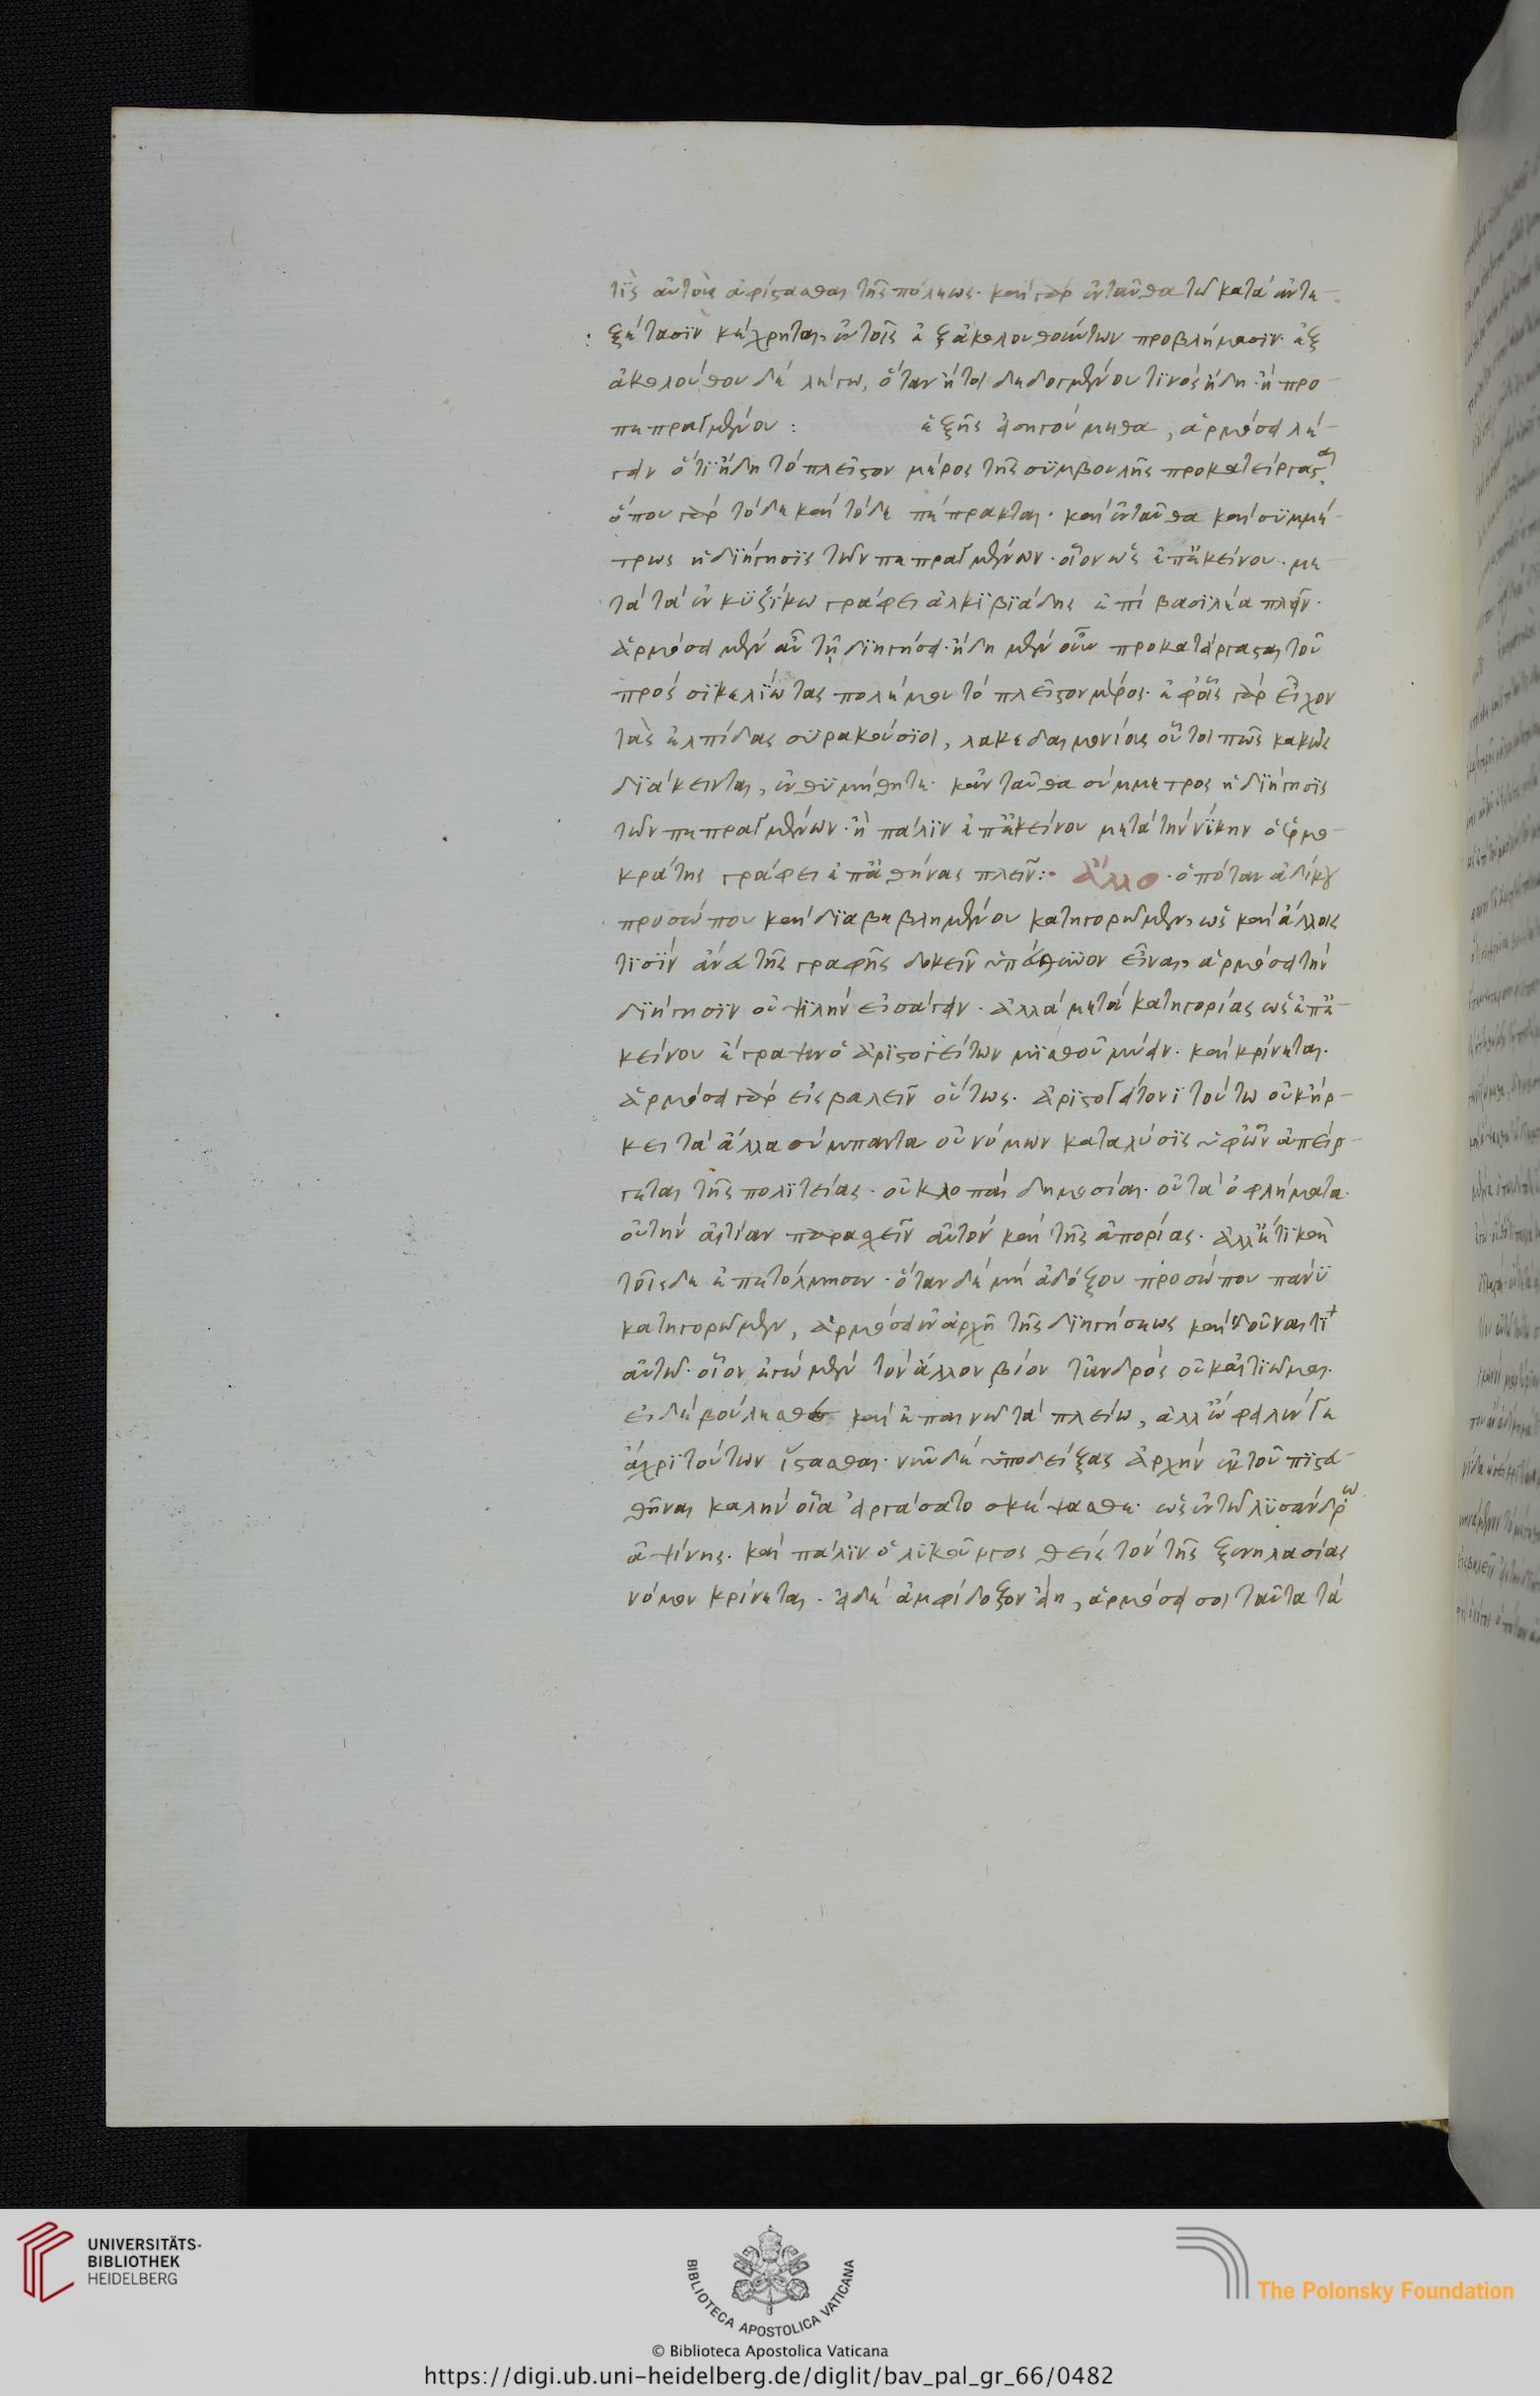 τις αὐτοὺς ἀφίστασθαι τῆς πόλεως. καὶ γὰρ ἐνταῦθα τῶ κατὰ ἀντε-
ξέτασιν κέχρηται, ἐν τοῖς ἐξ ἀκολουθούντων προβλήμασιν. ἐξ
ἀκολούθου δὲ λέγω, ὅταν ἤτοι δεδογμένου τινὸς ἤδη. ἢ προ-
πεπραγμένου: ἑξῆς εἰσηγούμεθα, ἁρμόσει λέ-
γειν ὅτι ἤδη τὸ πλεῖστον μέρος τῆς συμβουλῆς προκατείργασται
ὅπου γὰρ τόδε καὶ τόδε πέπρακται. καὶ ἐνταῦθα καὶ συμμέ-
τρως ἡ διήγησις τῶν πεπραγμένων. οἷον ὡς ἐπ' ἐκείνου. με-
τὰ τὰ ἐν κυζίκω γράφει ἀλκιβιάδης ἐπὶ βασιλέα πλεῖν.
ἁρμόσει μὲν αὖ τῇ διηγήσει. ἤδη μὲν οὖν προκατείργασται τοῦ
πρὸς σικελιώτας πολέμου τὸ πλεῖστον μέρος. ἐφ' οἷς γὰρ εἶχον
τὰς ἐλπίδας συρακούσιοι, λακεδαιμονίοις οὗτοι πῶς κακῶς
διάκεινται, ἐνθυμήθητε. κἀνταῦθα σύμμετρος ἡ διήγησις
τῶν πεπραγμένων. ἢ πάλιν ἐπ' ἐκείνου μετὰ τὴν νίκην ὁ ἑρμο-
κράτης γράφει ἐπ' ἀθήνας πλεῖν:· ἄλλο. ὁπόταν ἀδίκου
προσώπου καὶ διαβεβλημένου κατηγορῶμεν, ὡς καὶ ἄλλοις
τισὶν ἄνευ τῆς γραφῆς δοκεῖν ὑπεύθυνον εἶναι, ἁρμόσει τὴν
διήγησιν οὐ ψιλὴν εἰσάγειν. ἀλλὰ μετὰ κατηγορίας ὡς ἐπ' ἐ-
κείνου ἔγραψεν ὁ ἀριστογείτων μισθοῦ μένειν. καὶ κρίνεται.
ἁρμόσει γὰρ εἰσβαλεῖν οὕτως. ἀριστογείτονι τούτω οὐκ ἤρ-
κει τὰ ἄλλα σύμπαντα οὐ νόμων καταλύσις ὑφ' ὧν ἀπείρ-
γεται τῆς πολιτείας. οὐ κλοπαὶ δημοσίαι. οὐ τὰ ὀφλήματα.
οὐ τὴν αἰτίαν παρασχεῖν αὐτὸν καὶ τῆς ἀπορίας. ἀλλ' ἔτι καὶ
τοῖσδε ἐπετόλμησεν. ὅταν δὲ μὴ ἀδόξου προσώπου πάνυ
κατηγορῶμεν, ἁρμόσει ἐν ἀρχῇ τῆς διηγήσεως καὶ δοῦναί τι
αὐτῶ. οἷον ἐγὼ μὲν τὸν ἄλλον βίον τἀνδρὸς οὐκ αἰτιῶμαι.
εἰ δὲ βούλεσθε καὶ ἐπαινῶ τὰ πλείω, ἀλλ' ὤφειλέν γε
ἄχρι τούτων ἵστασθαι. νῦν δὲ ὑποδείξας ἀρχὴν ἐκ τοῦ πιστευ-
θῆναι καλὴν οἷα εἰργάσατο σκέψασθε. ὡς ἐν τῶ λυσάνδρω
αἰσχίνης. καὶ πάλιν ὁ λυκοῦργος θεὶς τὸν τῆς ξενηλασίας
νόμον κρίνεται. εἰ δὲ ἀμφίδοξον εἴη, ἁρμόσει σοι ταῦτα τὰ
UNIVERSITÄTS-
BIBLIOTHEK
HEIDELBERG
BIBLIOTECA APOSTOLICA VATICANA
The Polonsky Foundation
© Biblioteca Apostolica Vaticana
https://digi.ub.uni-heidelberg.de/diglit/bav_pal_gr_66/0482